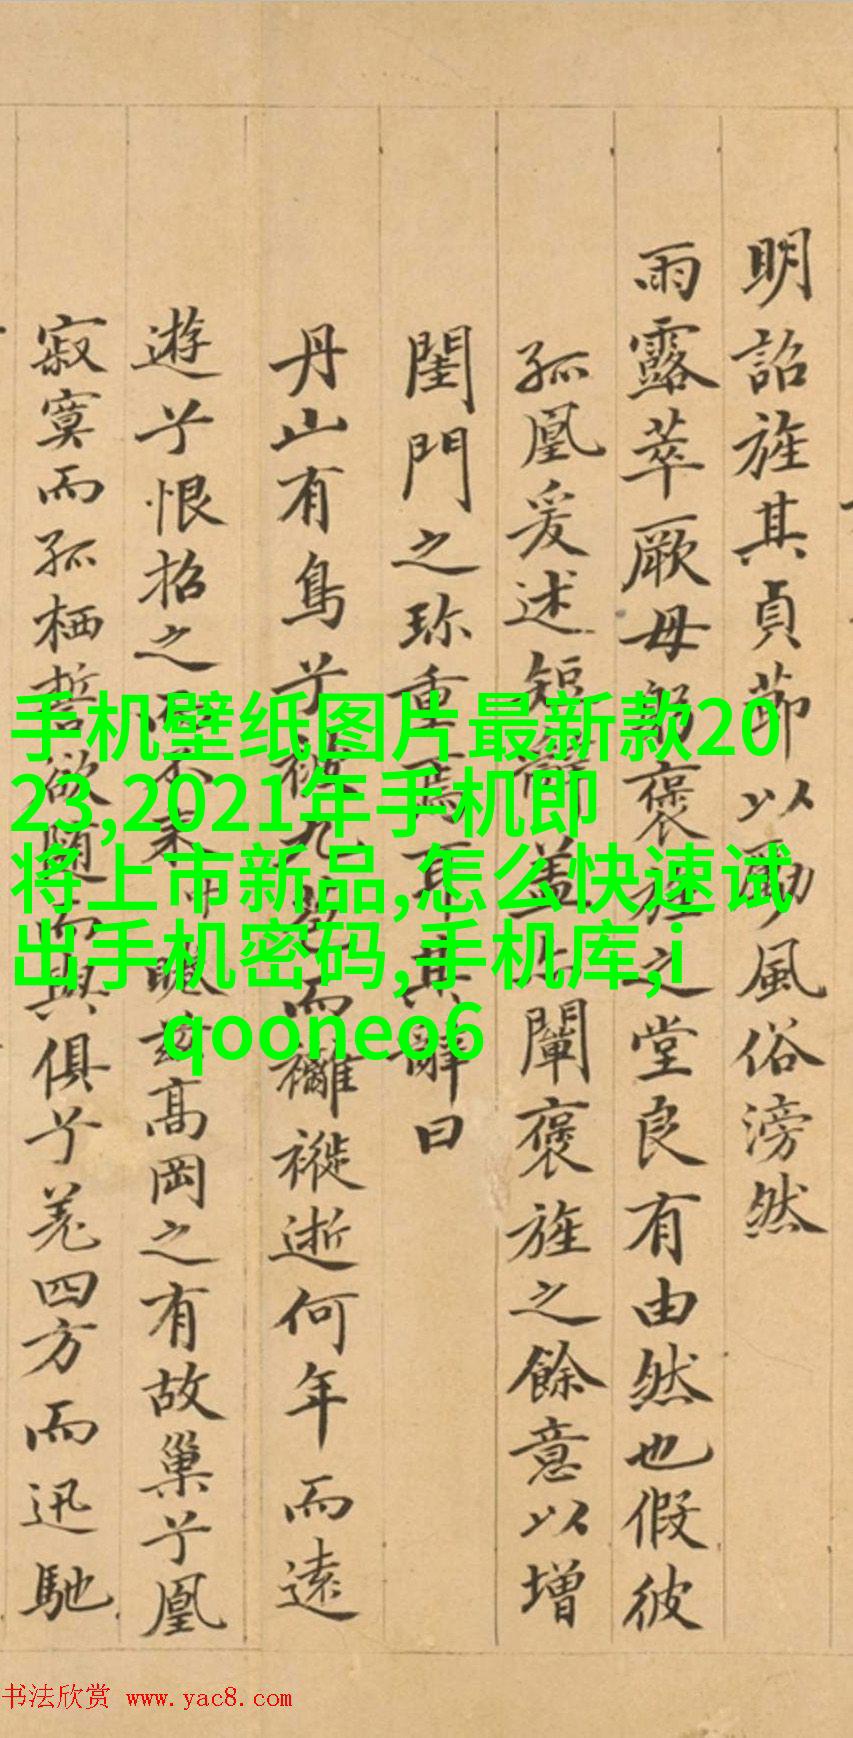 明詔旌其貞節以勵風俗滂然
雨露萃厥母躬褒旌之堂良有由然也假彼
孤凰爰述短辭盖与闡褒旌之餘意以增
閨門之珎重焉耳其辭曰
丹山有鳥兮被九苞而襹褷逝何年而遠
遊兮恨招之而不来睠兹高岡之有故巢兮凰
寂寞而孤栖誓欲隨而與俱兮羌四方而迅馳
手机壁纸图片最新款20
23,2021年手机即
将上市新品,怎么快速试
出手机密码,手机库,i
qooneo6
书法欣赏 www.yac8.com